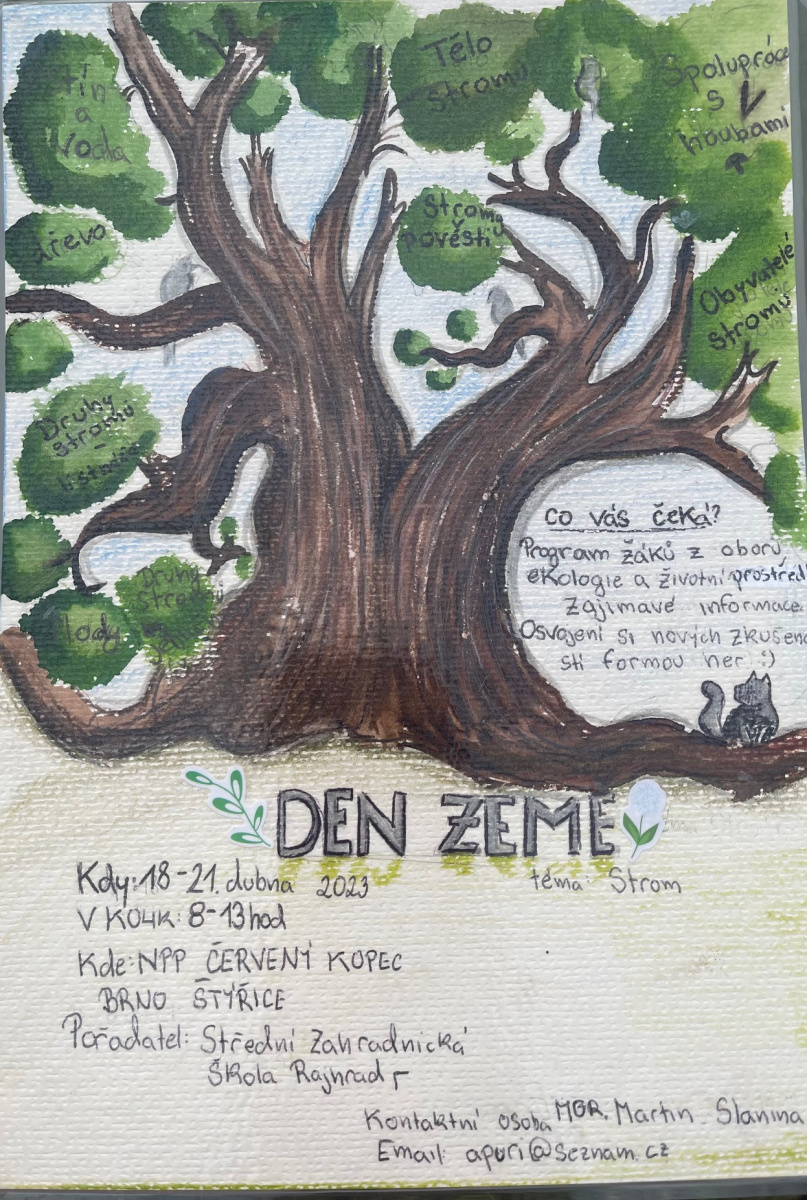 Tělo
stromu
Spolupráce
s
houbami
stín
a
voda
Stromy
pověsti
dřevo
Obyvatelé
stromů
Druhy
stromů
-
listnáče
Druhy
stromů
plody
co vás čeká?
Program žáků z oboru
ekologie a životní prostřed
Zajímavé informace
Osvojení si nových zkušeno
stí formou her :)
DEN ZEMĚ
Kdy: 18-21. dubna 2023
téma: Strom
V KOLIK: 8-13 hod
Kde: NPP ČERVENÝ KOPEC
BRNO ŠTÝŘICE
Pořadatel: Střední Zahradnická
Škola Rajhrad
Kontaktní osoba MGR. Martin Slanina
Email: apuri@seznam.cz